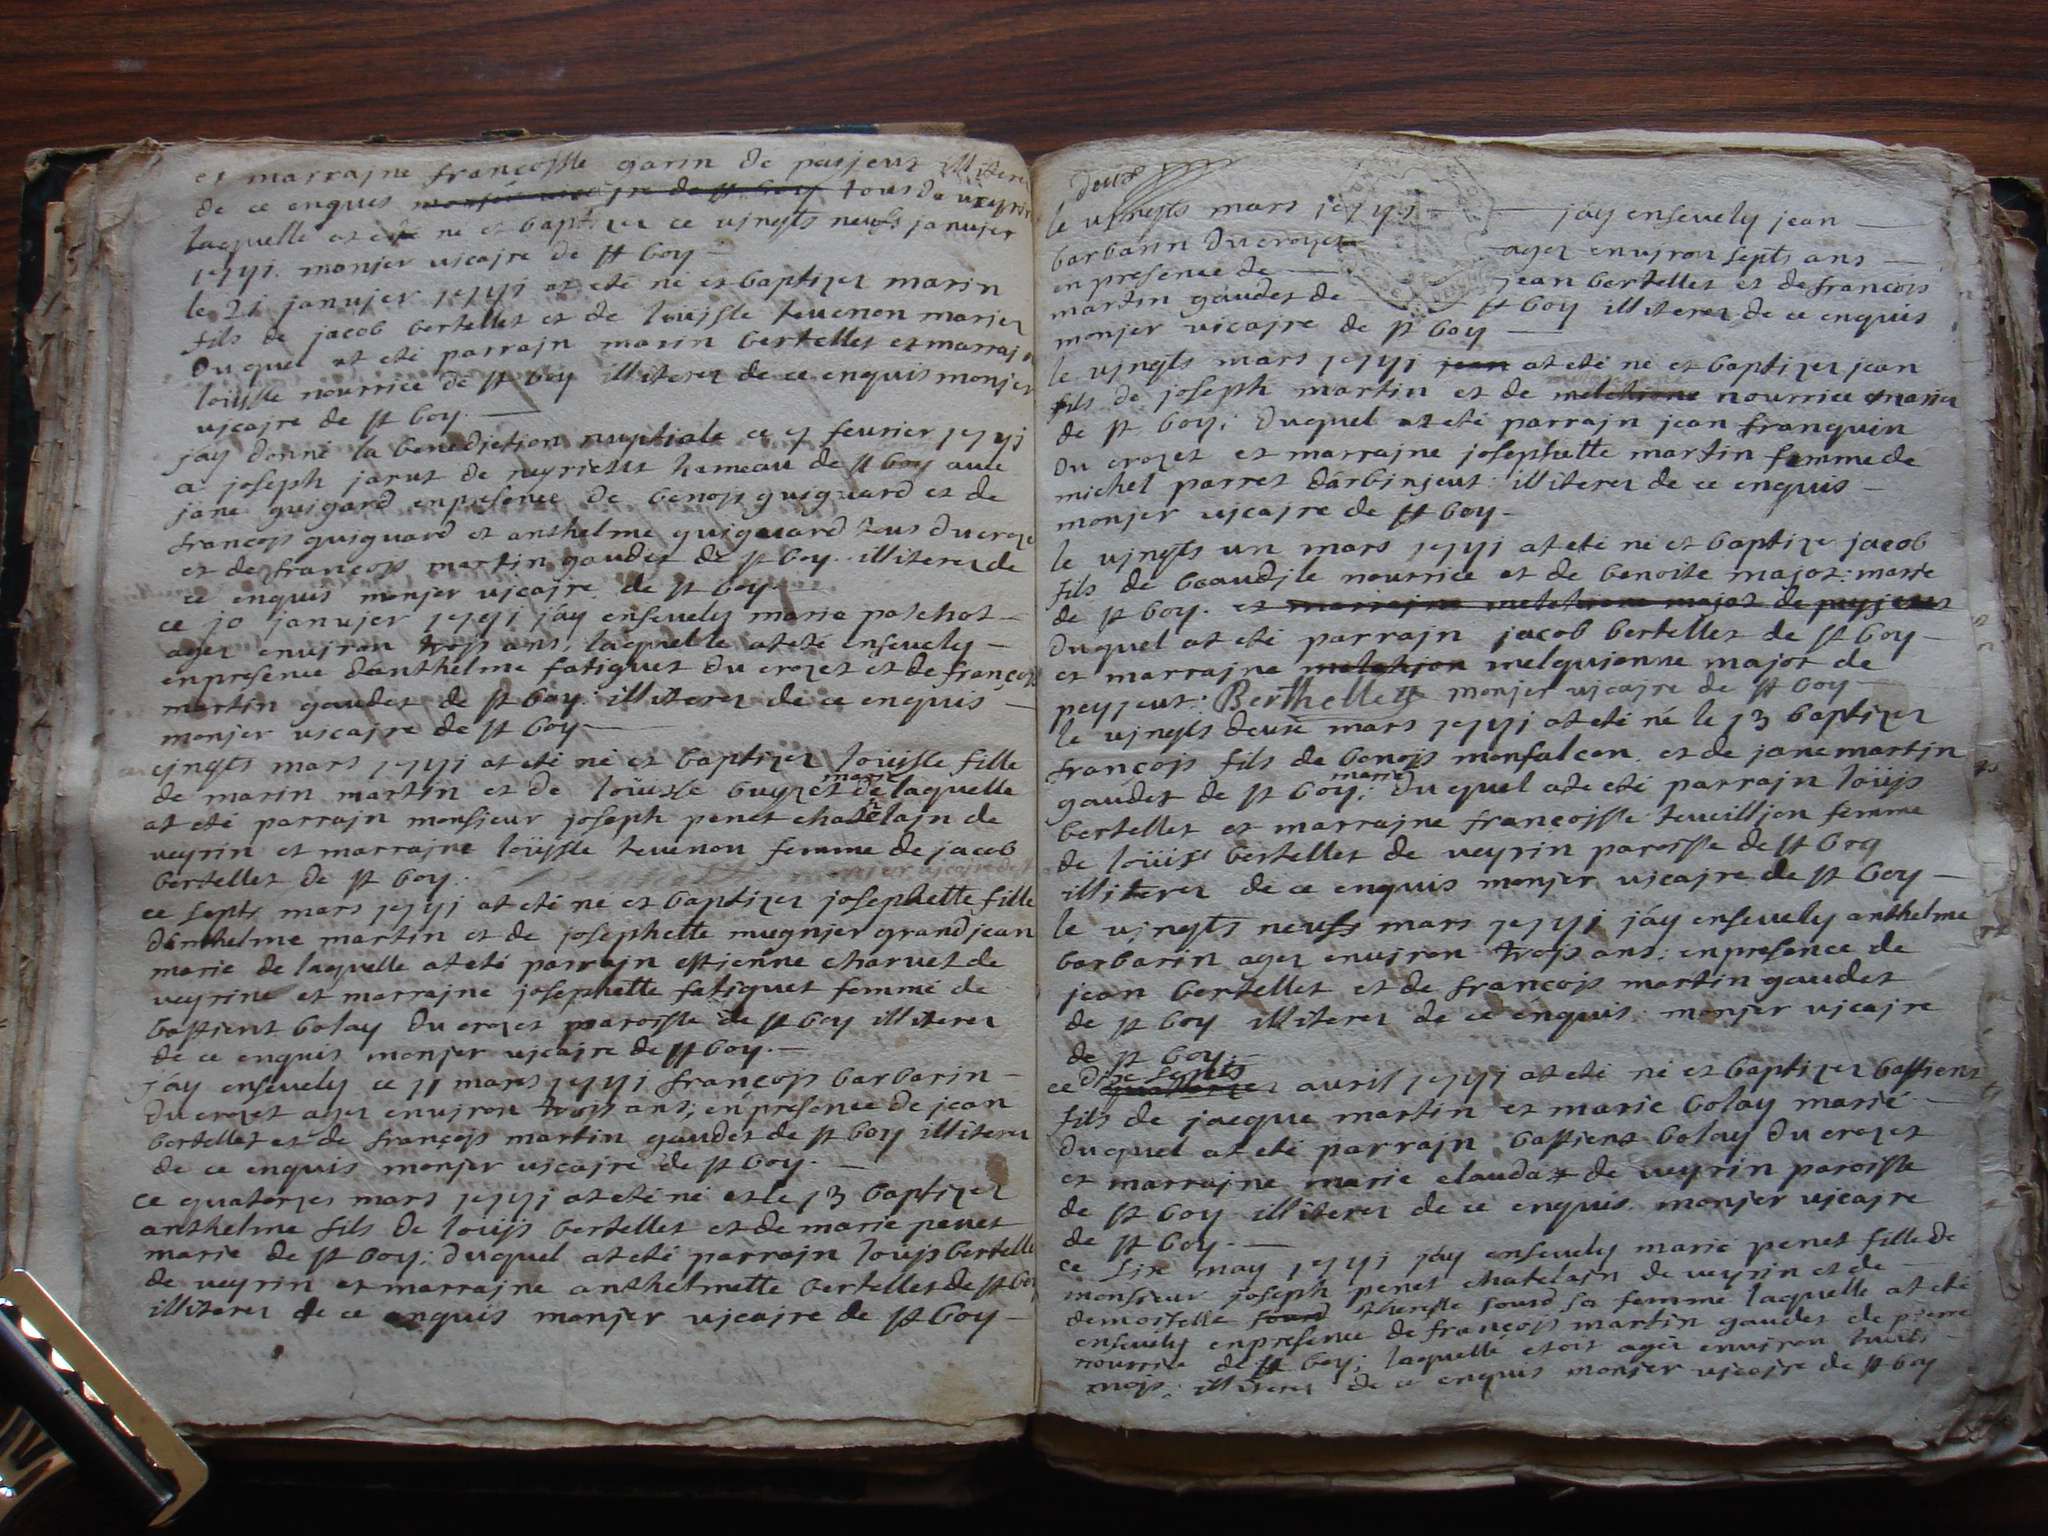 et marrajne françoisse garin de pasjeux illiterez
de ce enquis tous de veyrin
laquelle at esté ne et baptizez ce vjngts neufs janvjer
monjer vicajre de st boy
le 2i janvjer at eté né et baptizez marin
fils de jacob bertellet et de loüisse tevenon mariez
duquel at eté parrajn marin bertellet et marrajne
loüisse nourrice de st boy illiterez de ce enquis monjer
vicajre de st boy.
jáy donné la benedjction nuptiale ce fevrier
a joseph jarut de hameau de st boy avec
jane guigard enpresence de benojs guiguard et de
françojs guiguard et anthelme guiguard tous du crozet
et de françojs martin gaudet de st boy. illiterez de
ce enquis monjer vjcajre de st boy.
ce jo janvjer jáy ensevely marie paschot
agez environ trojs ans, laquelle at eté ensevely
enpresence danthelme fatiguet du crozet et de françojs
martin gaudet de st boy: illiterez de ce enquis
monjer vicajre de st boy
cjngts mars at eté né et baptizez loüisse fille
de marin martin et de loüisse buyzet marié de laquelle
at eté parrajn monsieur joseph penet chatelajn de
veyrin et marrajne loüisse tevenon femme de jacob
bertellet de st boy.
ce septs mars at eté né et baptizez josephette fille
danthelme martin et de josephette mugnjer grandjean
marie de laquelle at eté parrajn estienne charvet de
veyrine et marrajne josephette fatiguet femme de
bastient bolay du crozet paroisse de st boy illiterez
de ce enquis monjer vjcajre de st boy.
jáy ensevely ce jj mars françojs barbarin
du crozet agez environ trojs ans; enpresence de jean
bertellet et de françojs martin gaudet de st boy illiterez
de ce enquis monjer vjcajre de st boy.
ce quatorzes mars at eté né et le j3 baptizez
anthelme fils de loüjs bertellet et de marie penet
marie de st boy; duquel at eté parrajn loüjs bertellet
de veyrin et marrajne anthelmette bertellet de st boy
illiterez de ce enquis monjer vjcajre de st boy
deux
le vjngts mars jáy ensevely jean
barbarin du crozet agez environ septs ans
en presence de jean bertellet et de françojs
martin gaudet de st boy illiterez de ce enquis
monjer vicajre de st boy
le vjngts mars jean at eté né et baptizez jean
fils de joseph martin et de nourrice marien
de st boy; duquel at eté parrajn jean franquin
du crozet et marrajne josephette martin femme de
michel parret darbinjeux illiterez de ce enquis
monjer vjcajre de st boy.
le vjngts un mars at eté né et baptize jacob
fils de beaudjle nourrice et de benoite major: marie
de st boy. et marrajne melchione major de peyjeux
duquel at eté parrajn jacob bertellet de st boy
et marrajne melquionne major de
peyjeux: Berthellet monjer vjcajre de st boy
le vjngts deuxe mars at eté né le j3 baptizez
françojs fils de benojs monfalcon. et de jane martin
gaudet de st boy; marié duquel at eté parrajn loüjs
bertellet et marrajne françoisse tevilljon femme
de loüjs bertellet de veyrin paroisse de st boy
illiterez de ce enquis monjer vjcajre de st boy
le vjngts neufs mars jáy ensevely anthelme
barbarin agez environ trojs ans: enpresence de
jean bertellet et de françojs martin gaudet
de st boy illiterez de ce enquis monjer vjcajre
de st boy.
ce dixe septs avril at eté né et baptizez bastient
fils de jacque martin et marie bolay marié
duquel at eté parrajn bastient bolay du crozet
et marrajne marie claudat de veyrin paroisse
de st boy illiterez de ce enquis monjer vjcajre
de st boy.
ce sixe may jáy ensevely marie penet fille de
monsieur joseph penet chatelajn de veyrin et de
demoiselle theresse sourd sa femme laquelle at eté
ensevely enpresence de françojs martin gaudet de pierre
nourrice de st boy; laquelle etoit agez environ huits
mojs. illiterez de ce enquis monjer vjcajre de st boy